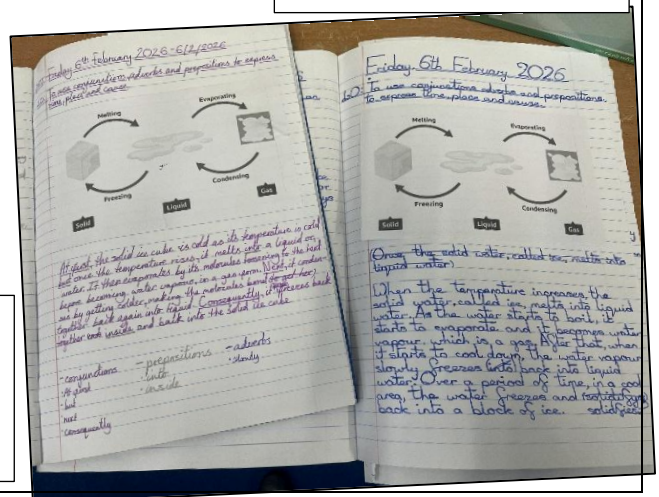 Friday 6th February 2026 - 6/2/2026
LO: To use conjunctions, adverbs and prepositions to express
time, place and cause.
Melting
Evaporating
Freezing
Condensing
Solid
Liquid
Gas
At first, the solid ice cube is cold as its temperature is cold
but once the temperature rises, it melts into a liquid or
water. It then evaporates by its molecules loosening to the heat
before becoming water vapour, in a gas form. Next, it conden-
ses by getting colder, making the molecules bond
together back again into liquid. Consequently, it freezes back
together inside and back into the solid ice cube
-conjunctions
-At first
-but
-next
-consequently
-prepositions
-into
-inside
-adverbs
-slowly
Friday 6th February 2026
LO: To use conjunctions, adverbs and prepositions
to express time, place and cause.
Melting
Evaporating
Freezing
Condensing
Solid
Liquid
Gas
Once the solid water, called ice, melts into
liquid water
When the temperature increases, the
solid water, called ice, melts into liquid
water. As the water starts to boil, it
starts to evaporate and it becomes water
vapour, which is a gas. After that, when
it starts to cool down, the water vapour
slowly freezes into back into liquid
water. Over a period of time, in a cool
area, the water freezes and
back into a block of ice. solidifies